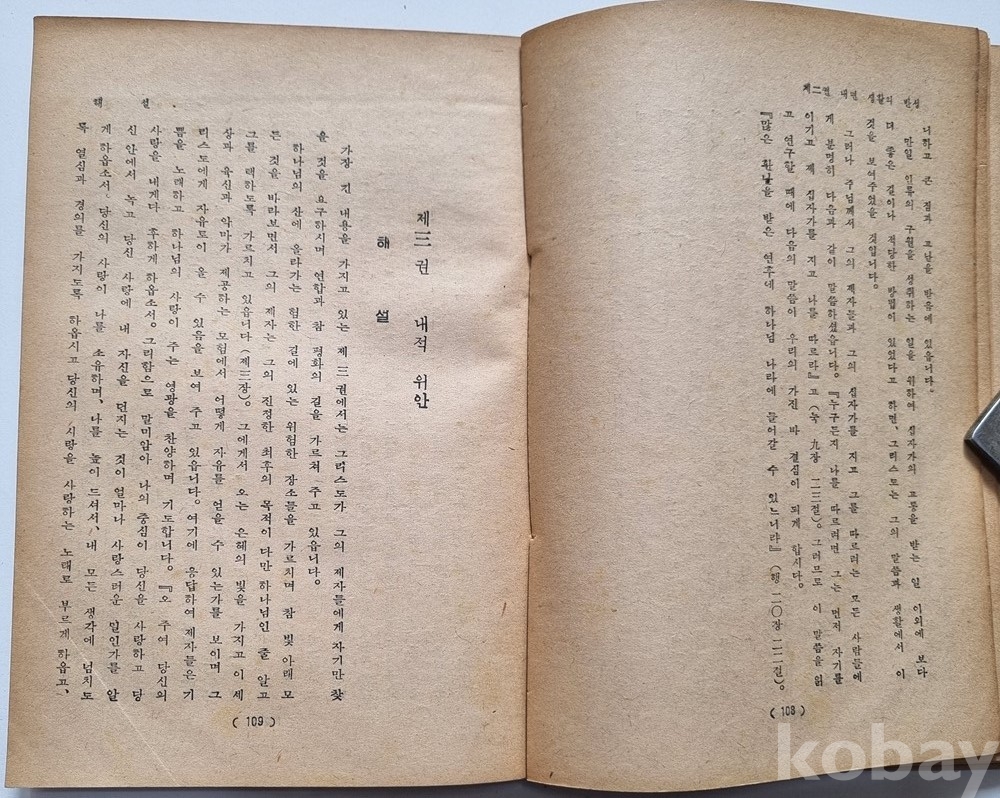 제二권 내면 생활의 반성
너하고 큰 짐과 고난을 받음에 있읍니다.
만일 인류의 구원을 성취하는 일을 위하여 십자가의 고통을 받는 일 이외에 보다
더 좋은 길이나 적당한 방법이 있었다고 하면, 그리스도는 그의 말씀과 생활에서 이
것을 보여주었을 것입니다.
그러나 주님께서 그의 제자들과 그의 십자가를 지고 그를 따르려는 모든 사람들에
게 분명히 다음과 같이 말씀하셨읍니다. 『누구든지 나를 따르려면 그는 먼저 자기를
이기고 제 십자가를 지고 나를 따르라』고 (눅 九장 二三절). 그러므로 이 말씀을 읽
고 연구할 때에 다음의 말씀이 우리의 가진 바 결심이 되게 합시다.
『많은 환난을 받은 연후에 하나님 나라에 들어갈 수 있느니라』 (행 二〇장 二二절).
( 108 )
제三권 내적 위안
해설
가장 긴 내용을 가지고 있는 제 三권에서는 그리스도가 그의 제자들에게 자기만 찾
을 것을 요구하시며 연합과 참 평화의 길을 가르쳐 주고 있읍니다.
하나님의 산에 올라가는 험한 길에 있는 위험한 장소들을 가르치며 참 빛 아래 모
든 것을 바라보면서 그의 제자는 그의 진정한 최후의 목적이 다만 하나님인 줄 알고
그를 택하도록 가르치고 있읍니다 (제三장). 그에게서 오는 은혜의 빛을 가지고 이 세
상과 육신과 악마가 제공하는 모험에서 어떻게 자유를 얻을 수 있는가를 보이며 그
리스도에게 자유로이 올 수 있음을 보여 주고 있읍니다. 여기에 응답하여 제자들은 기
쁨을 노래하고 하나님의 사랑이 주는 영광을 찬양하며 기도합니다. 『오 주여 당신의
사랑을 내게다 후하게 하옵소서. 그리함으로 말미암아 나의 중심이 당신을 사랑하고 당
신 안에서 녹고 당신 사랑에 내 자신을 던지는 것이 얼마나 사랑스러운 일인가를 알
게 하옵소서. 당신의 사랑이 나를 소유하며, 나를 높이 드셔서, 내 모든 생각에 넘치도
록 열심과 경의를 가지도록 하옵시고 당신의 사랑을 사랑하는 노래로 부르게 하옵고,
해설
( 109 )
kobay